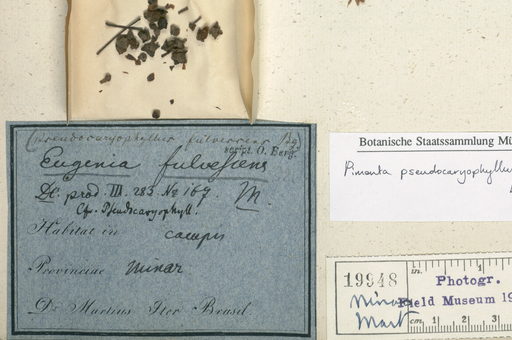 (Pseudocaryophyllus fulvescens Bg)
script. O. Berg.
Eugenia fulvescens
DC. prod. III. 283. No 167. M.
Cfr. Pseudocaryophyll.
Habitat in campis
Provinciae Minar
Dr. Martius Iter Brasil.
Botanische Staatssammlung Mü
Pimenta pseudocaryophyllu
19948
Minas
Mart
in. 1
Photogr.
Field Museum 19
cm. 1 2 3